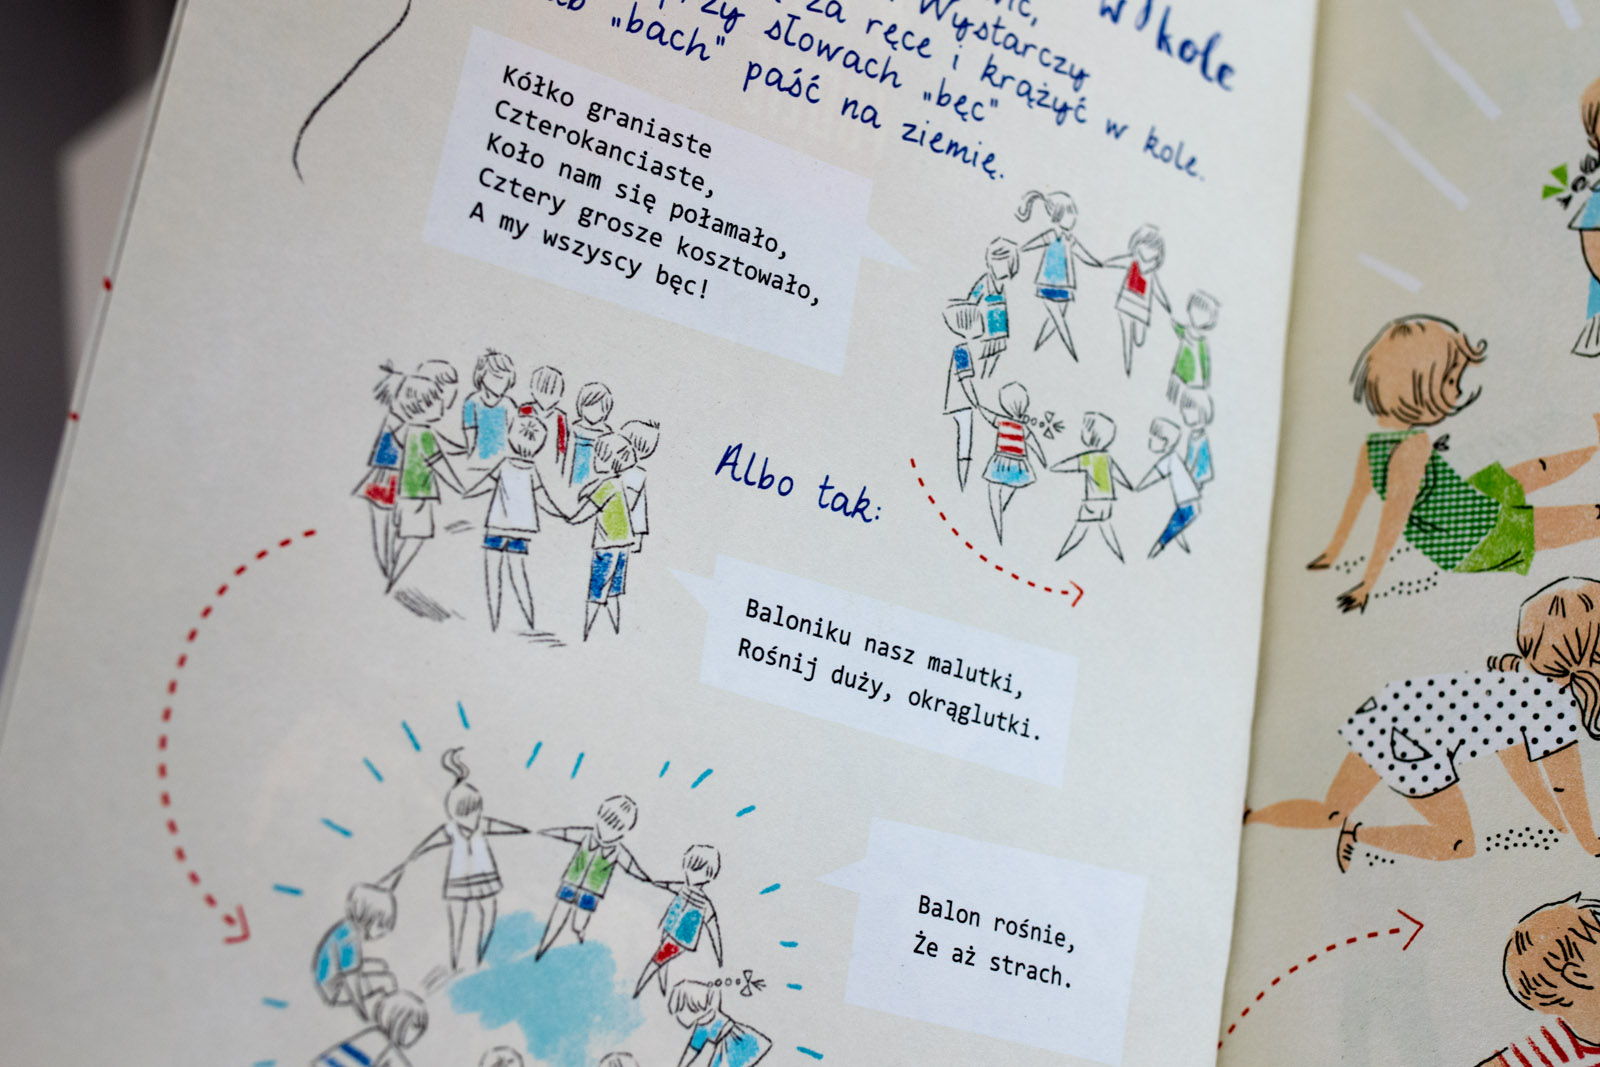 w kole
za ręce i krążyć w kole.
Wystarczy
przy słowach „bęc"
„bach" paść na ziemię.
Kółko graniaste
Czterokanciaste,
Koło nam się połamało,
Cztery grosze kosztowało,
A my wszyscy bęc!
Albo tak:
Baloniku nasz malutki,
Rośnij duży, okrąglutki.
Balon rośnie,
Że aż strach.